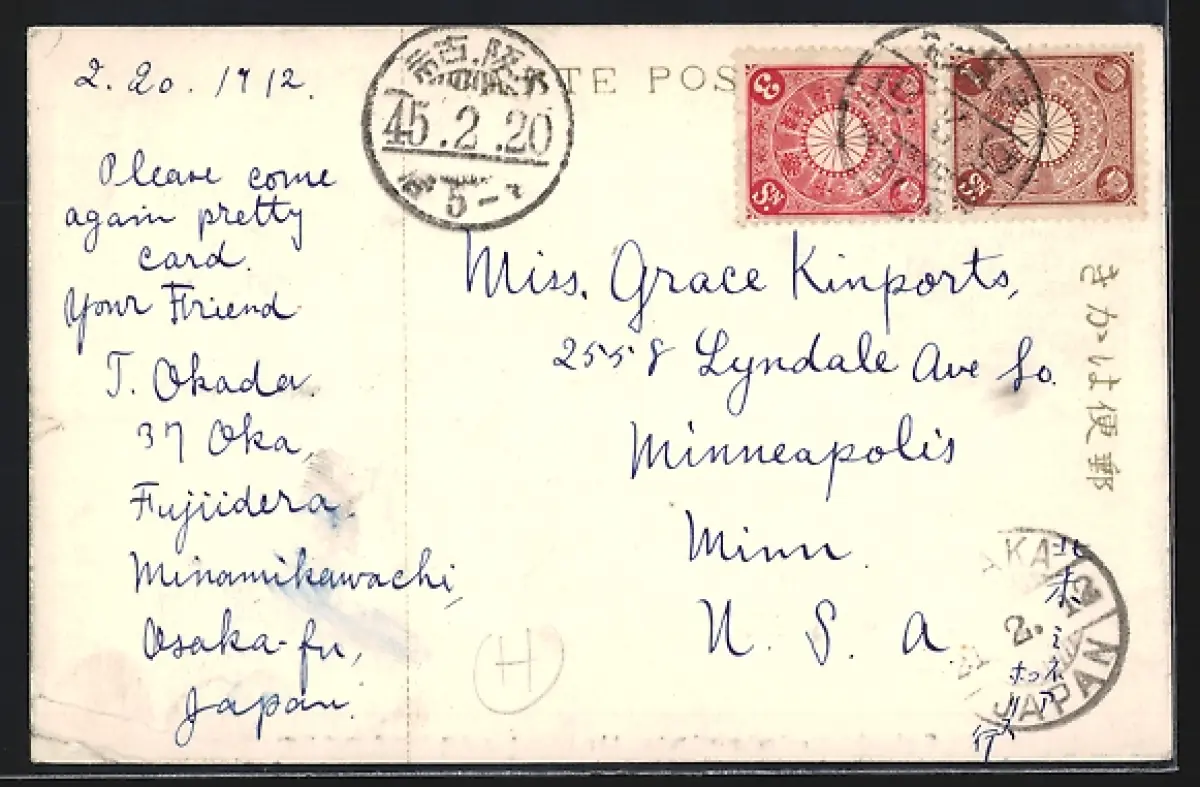 2. 20. 1912.
Please come
again pretty
card.
Your Friend
T. Okada.
37 Oka,
Fujiidera.
Minamikawachi,
Osaka-fu,
Japan.
45.2.20
TE POS
3
Miss. Grace Kinports,
2558 Lyndale Ave So.
Minneapolis
Minn.
U. S. A
きかは便郵
AKA
2. 12
JAPAN
北米
ミネ
行
H